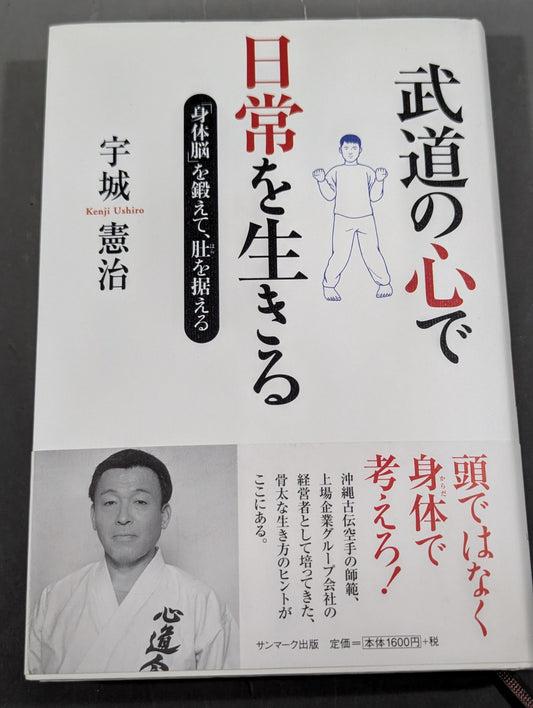 武道の心で
日常を生きる
「身体脳」を鍛えて、肚を据える
はら
宇城憲治
Kenji Ushiro
頭ではなく
身体で
からだ
考えろ!
沖縄古伝空手の師範、
上場企業グループ会社の
経営者として培ってきた、
骨太な生き方のヒントが
ここにある。
サンマーク出版 定価=本体1600円+税
心道会